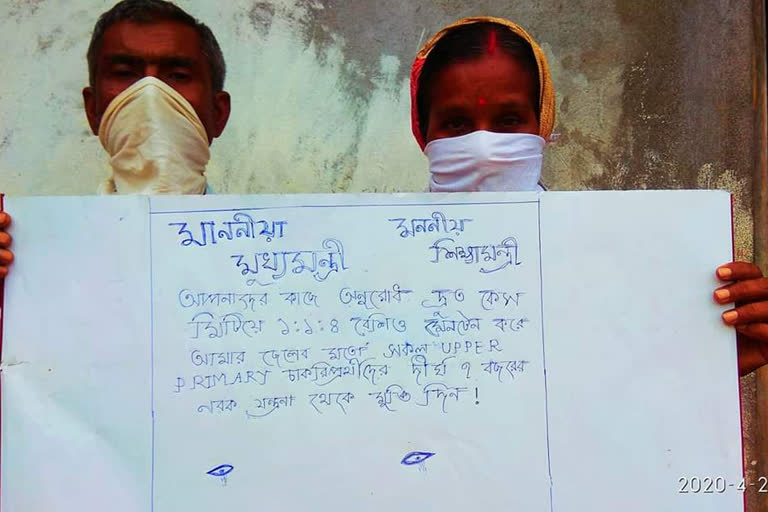 মাননীয়া মননীয়
মুখ্যমন্ত্রী শিক্ষামন্ত্রী
আপনাদের কাছে অনুরোধ দ্রুত কেস
মিটিয়ে ১:১:৪ রেশিও মেনটেন করে
আমার ছেলের মতো সকল UPPER
PRIMARY চাকরিপ্রার্থীদের দীর্ঘ ৭ বছরের
নরক যন্ত্রনা থেকে মুক্তি দিন!
2020-4-2